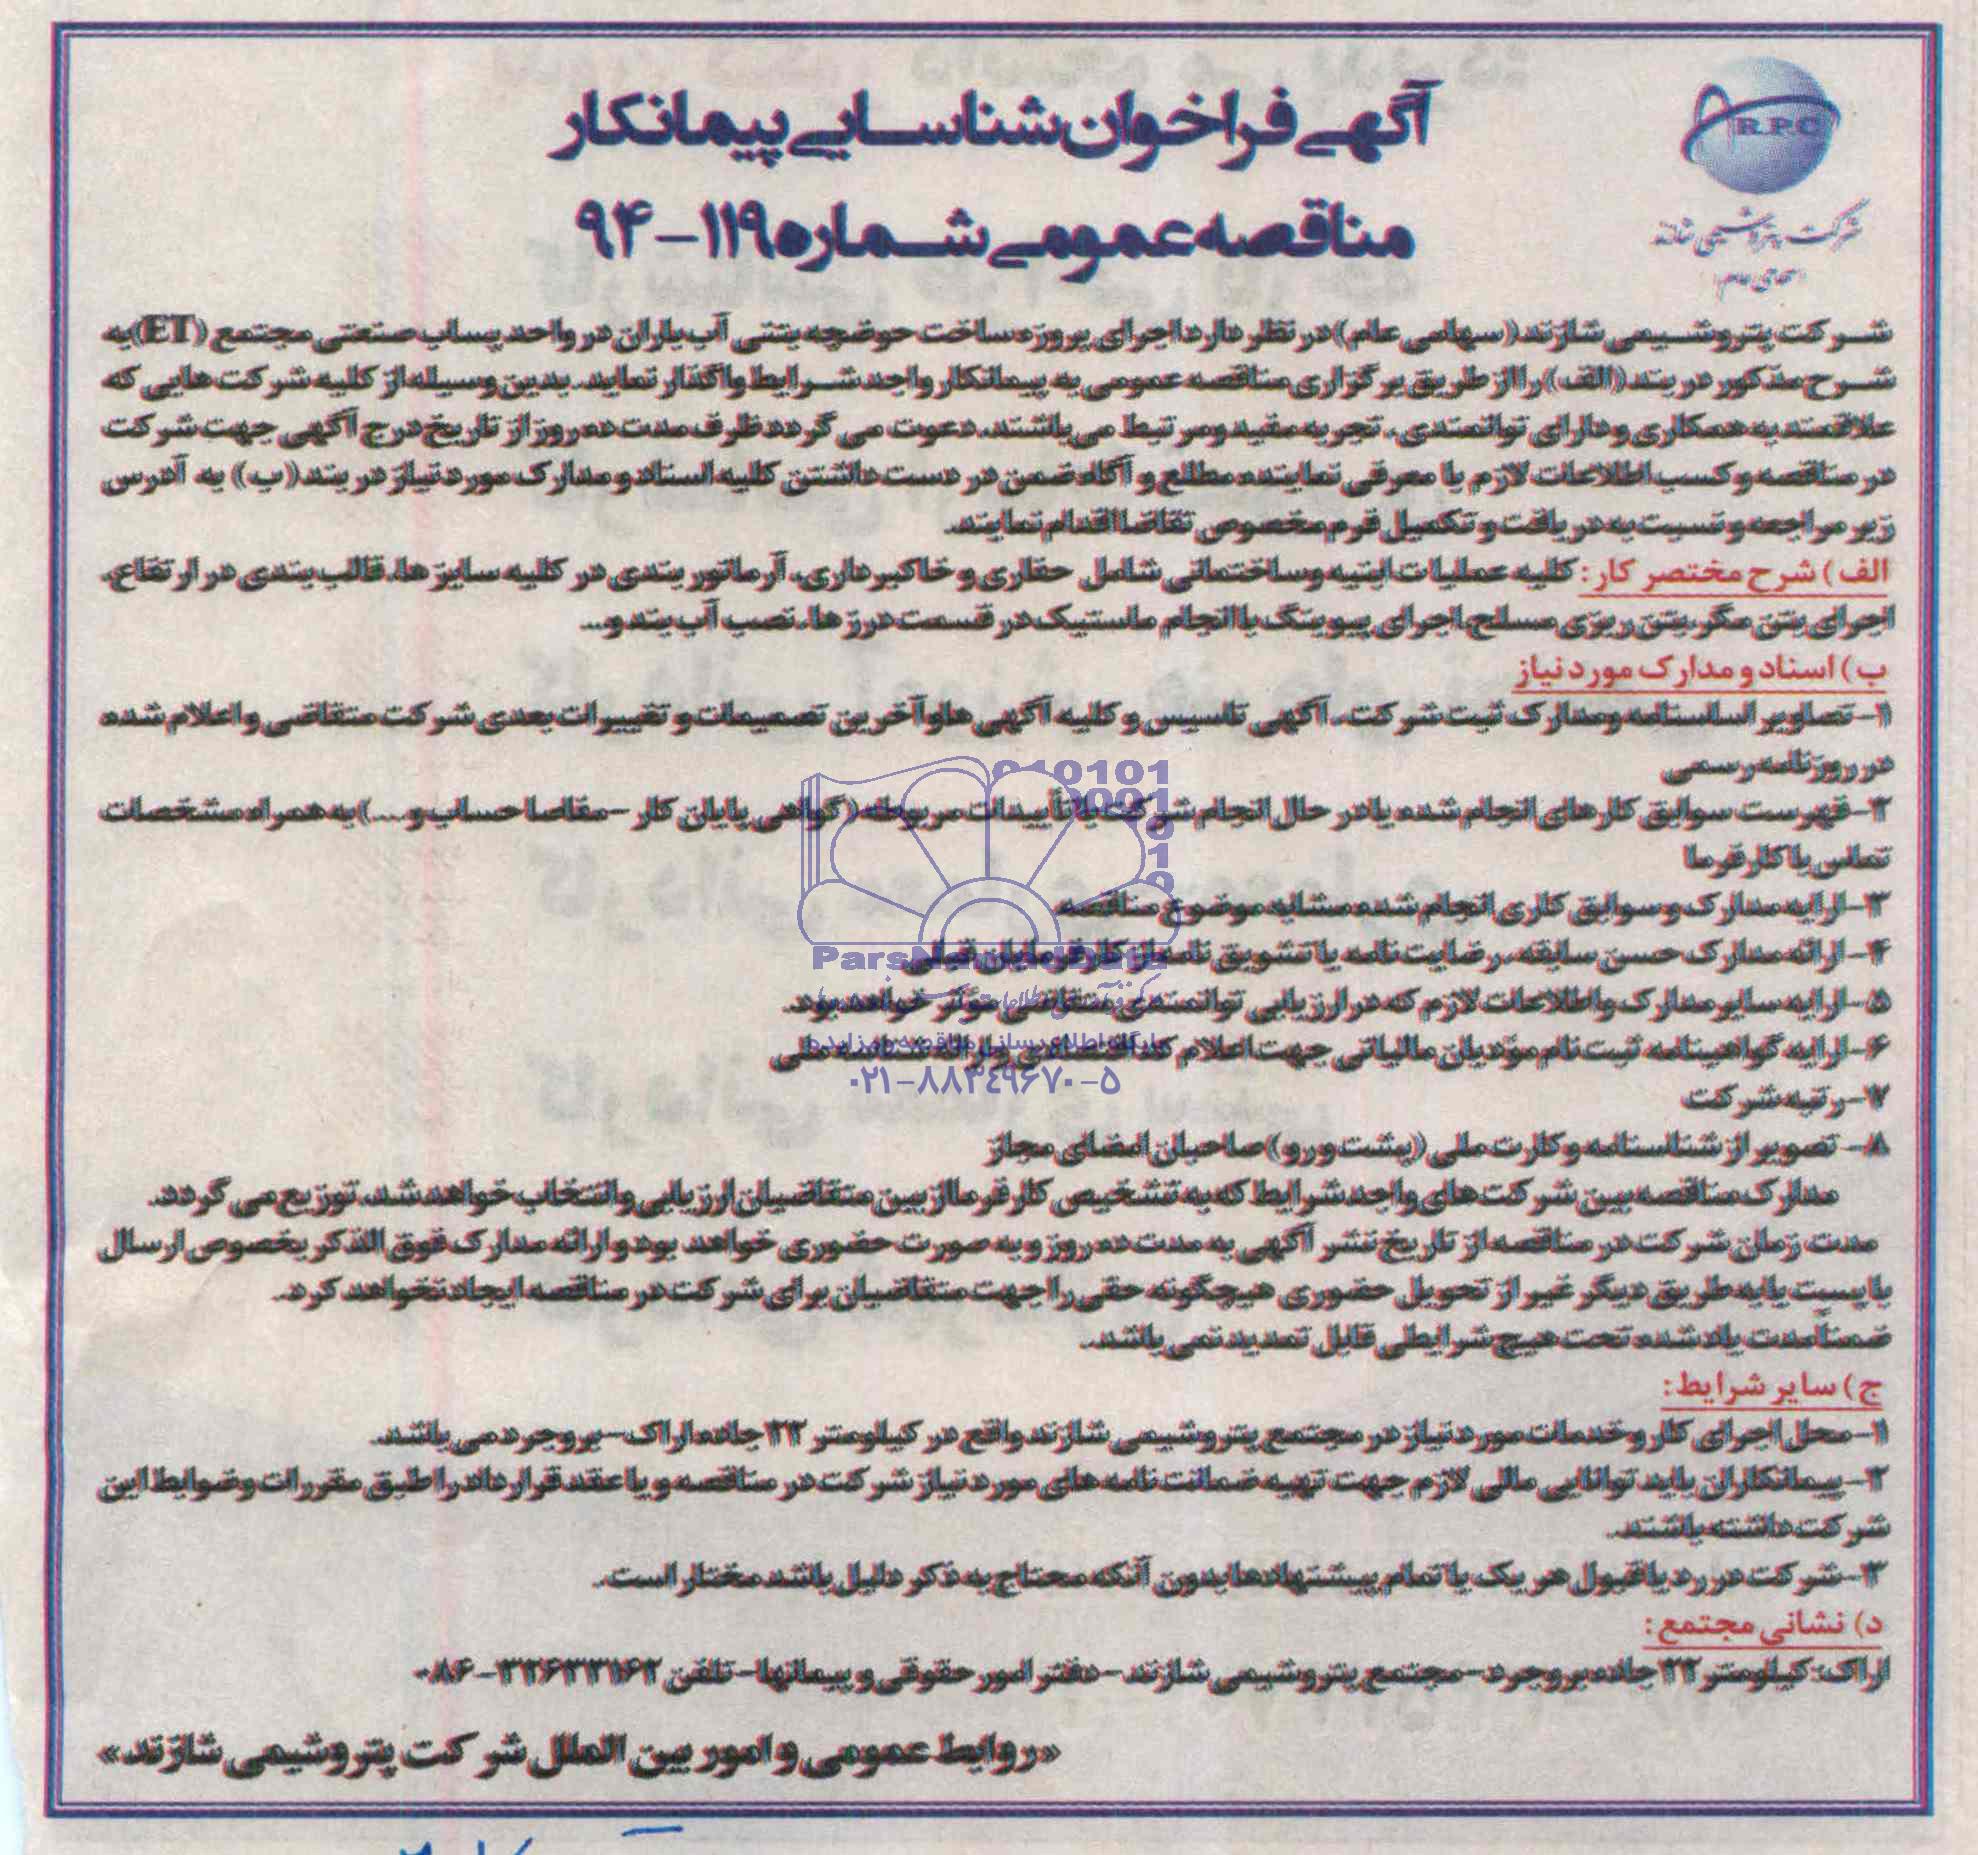 R.P.C
شرکت پتروشیمی شازند
(سهامی عام)
آگهی فراخوان شناسایی پیمانکار
مناقصه عمومی شماره ۱۱۹-۹۴
شرکت پتروشیمی شازند (سهامی عام) در نظر دارد اجرای پروژه ساخت حوضچه بتنی آب باران در واحد پساب صنعتی مجتمع (ET) به
شرح مذکور در بند (الف) را از طریق برگزاری مناقصه عمومی به پیمانکار واجد شرایط واگذار نماید. بدین وسیله از کلیه شرکت هایی که
علاقمند به همکاری و دارای توانمندی، تجربه مفید و مرتبط می باشند، دعوت می گردد ظرف مدت ده روز از تاریخ درج آگهی جهت شرکت
در مناقصه و کسب اطلاعات لازم با معرفی نماینده مطلع و آگاه ضمن در دست داشتن کلیه اسناد و مدارک مورد نیاز در بند (ب) به آدرس
زیر مراجعه و نسبت به دریافت و تکمیل فرم مخصوص تقاضا اقدام نمایند.
الف) شرح مختصر کار: کلیه عملیات ابنیه و ساختمانی شامل حفاری و خاکبرداری، آرماتوربندی در کلیه سایز ها، قالب بندی در ارتفاع،
اجرای بتن مگر، بتن ریزی مسلح، اجرای پیوینگ با انجام ماستیک در قسمت درز ها، نصب آب بند و...
ب) اسناد و مدارک مورد نیاز
۱- تصاویر اساسنامه و مدارک ثبت شرکت، آگهی تاسیس و کلیه آگهی ها و آخرین تصمیمات و تغییرات بعدی شرکت متقاضی و اعلام شده
در روزنامه رسمی
۲- فهرست سوابق کارهای انجام شده یا در حال انجام شرکت با تأییدات مربوطه (گواهی پایان کار - مفاصا حساب و ...) به همراه مشخصات
تماس با کارفرما
۳- ارایه مدارک و سوابق کاری انجام شده مشابه موضوع مناقصه
۴- ارائه مدارک حسن سابقه، رضایت نامه یا تشویق نامه از کارفرمایان قبلی
۵- ارایه سایر مدارک و اطلاعات لازم که در ارزیابی توانمندی متقاضی مؤثر خواهد بود.
۶- ارایه گواهینامه ثبت نام مؤدیان مالیاتی جهت اعلام کد اقتصادی و ارائه شناسه ملی
۷- رتبه شرکت
۸- تصویر از شناسنامه و کارت ملی (پشت و رو) صاحبان امضای مجاز
مدارک مناقصه بین شرکت های واجد شرایط که به تشخیص کارفرما از بین متقاضیان ارزیابی و انتخاب خواهد شد، توزیع می گردد.
مدت زمان شرکت در مناقصه از تاریخ نشر آگهی به مدت ده روز و به صورت حضوری خواهد بود و ارائه مدارک فوق الذکر بخصوص ارسال
با پست یا به طریق دیگر غیر از تحویل حضوری هیچگونه حقی را جهت متقاضیان برای شرکت در مناقصه ایجاد نخواهد کرد.
ضمناً مدت یاد شده تحت هیچ شرایطی قابل تمدید نمی باشد.
ج) سایر شرایط:
۱- محل اجرای کار و خدمات مورد نیاز در مجتمع پتروشیمی شازند واقع در کیلومتر ۲۲ جاده اراک - بروجرد می باشد.
۲- پیمانکاران باید توانایی مالی لازم جهت تهیه ضمانت نامه های مورد نیاز شرکت در مناقصه و یا عقد قرارداد را طبق مقررات و ضوابط این
شرکت داشته باشند.
۳- شرکت در رد یا قبول هر یک یا تمام پیشنهادها بدون آنکه محتاج به ذکر دلیل باشد مختار است.
د) نشانی مجتمع:
اراک: کیلومتر ۲۲ جاده بروجرد - مجتمع پتروشیمی شازند - دفتر امور حقوقی و پیمانها - تلفن ۳۲۶۳۳۱۶۲-۰۸۶
«روابط عمومی و امور بین الملل شرکت پتروشیمی شازند»
ParsNamadData
پایگاه اطلاع رسانی مناقصه و مزایده
۰۲۱-۸۸۳۴۹۶۷۰-۵